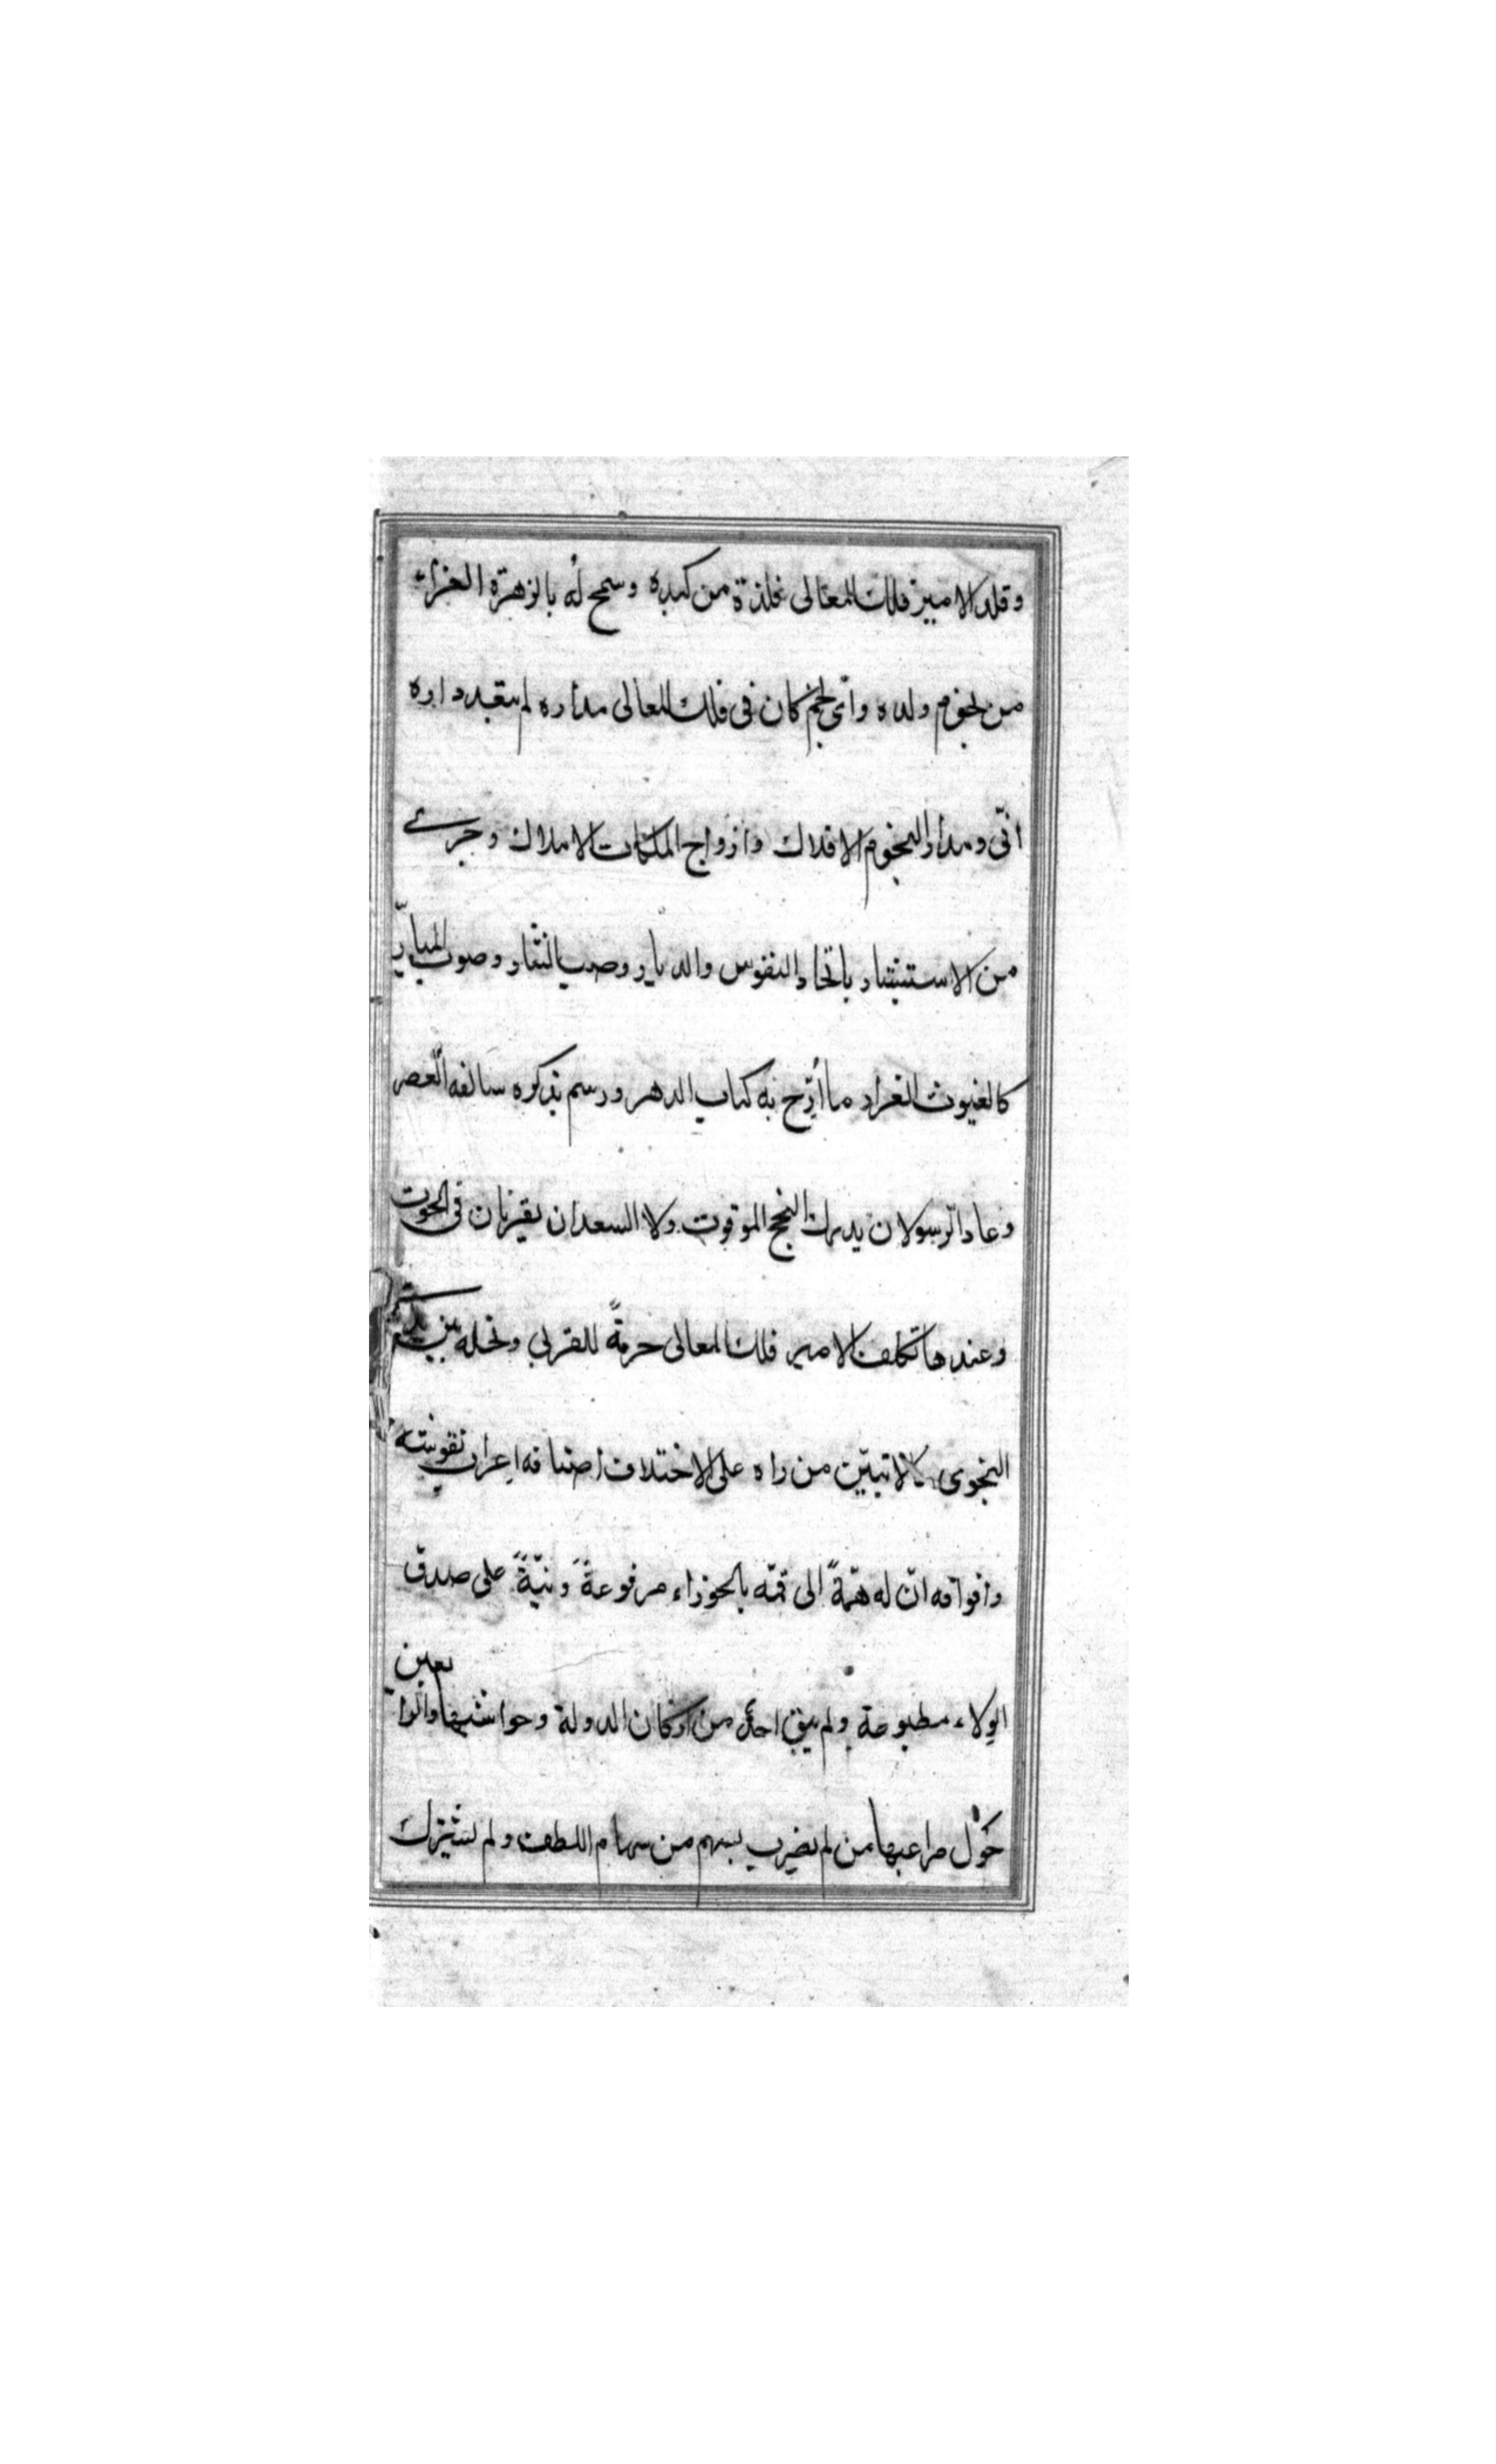 وقلد الامير فلك المعالى فلذة من كبده وسمح له بالزهرة الغراء
من نجوم ولده واى نجم كان فى فلك المعالى مداره لم يتعبد داره
انّى ومدار النجوم الافلاك وازواج الملكات الاملاك وجرى
من الاستبشار باتحاد النفوس والديار وصب النثار وصوب المبارّ
كالغيوث الغرار ما أرّخ به كتاب الدهر ورسم بذكره سالفه العصر
وعاد الرسولان يدرك النجح الموقوت ولا السعدان يقترنان فى الحوت
وعندها تكلف الامير فلك المعالى حرمةً للقربى ونحله بين يدى
النجوى كلا تبيّن من راه على الاختلاف اصنافه اعراب تفوسته
وافواقه انّ له همّةً الى قمّه بالجوزاء مرفوعةً ونيّةً على صدق
الولاء مطبوعة ولم يبق احدٌ من اركان الدولة وحواشيها والرا تعين
حَوْل مراعيها من لم يضرب بسهم من سهام اللطف ولم يشترك